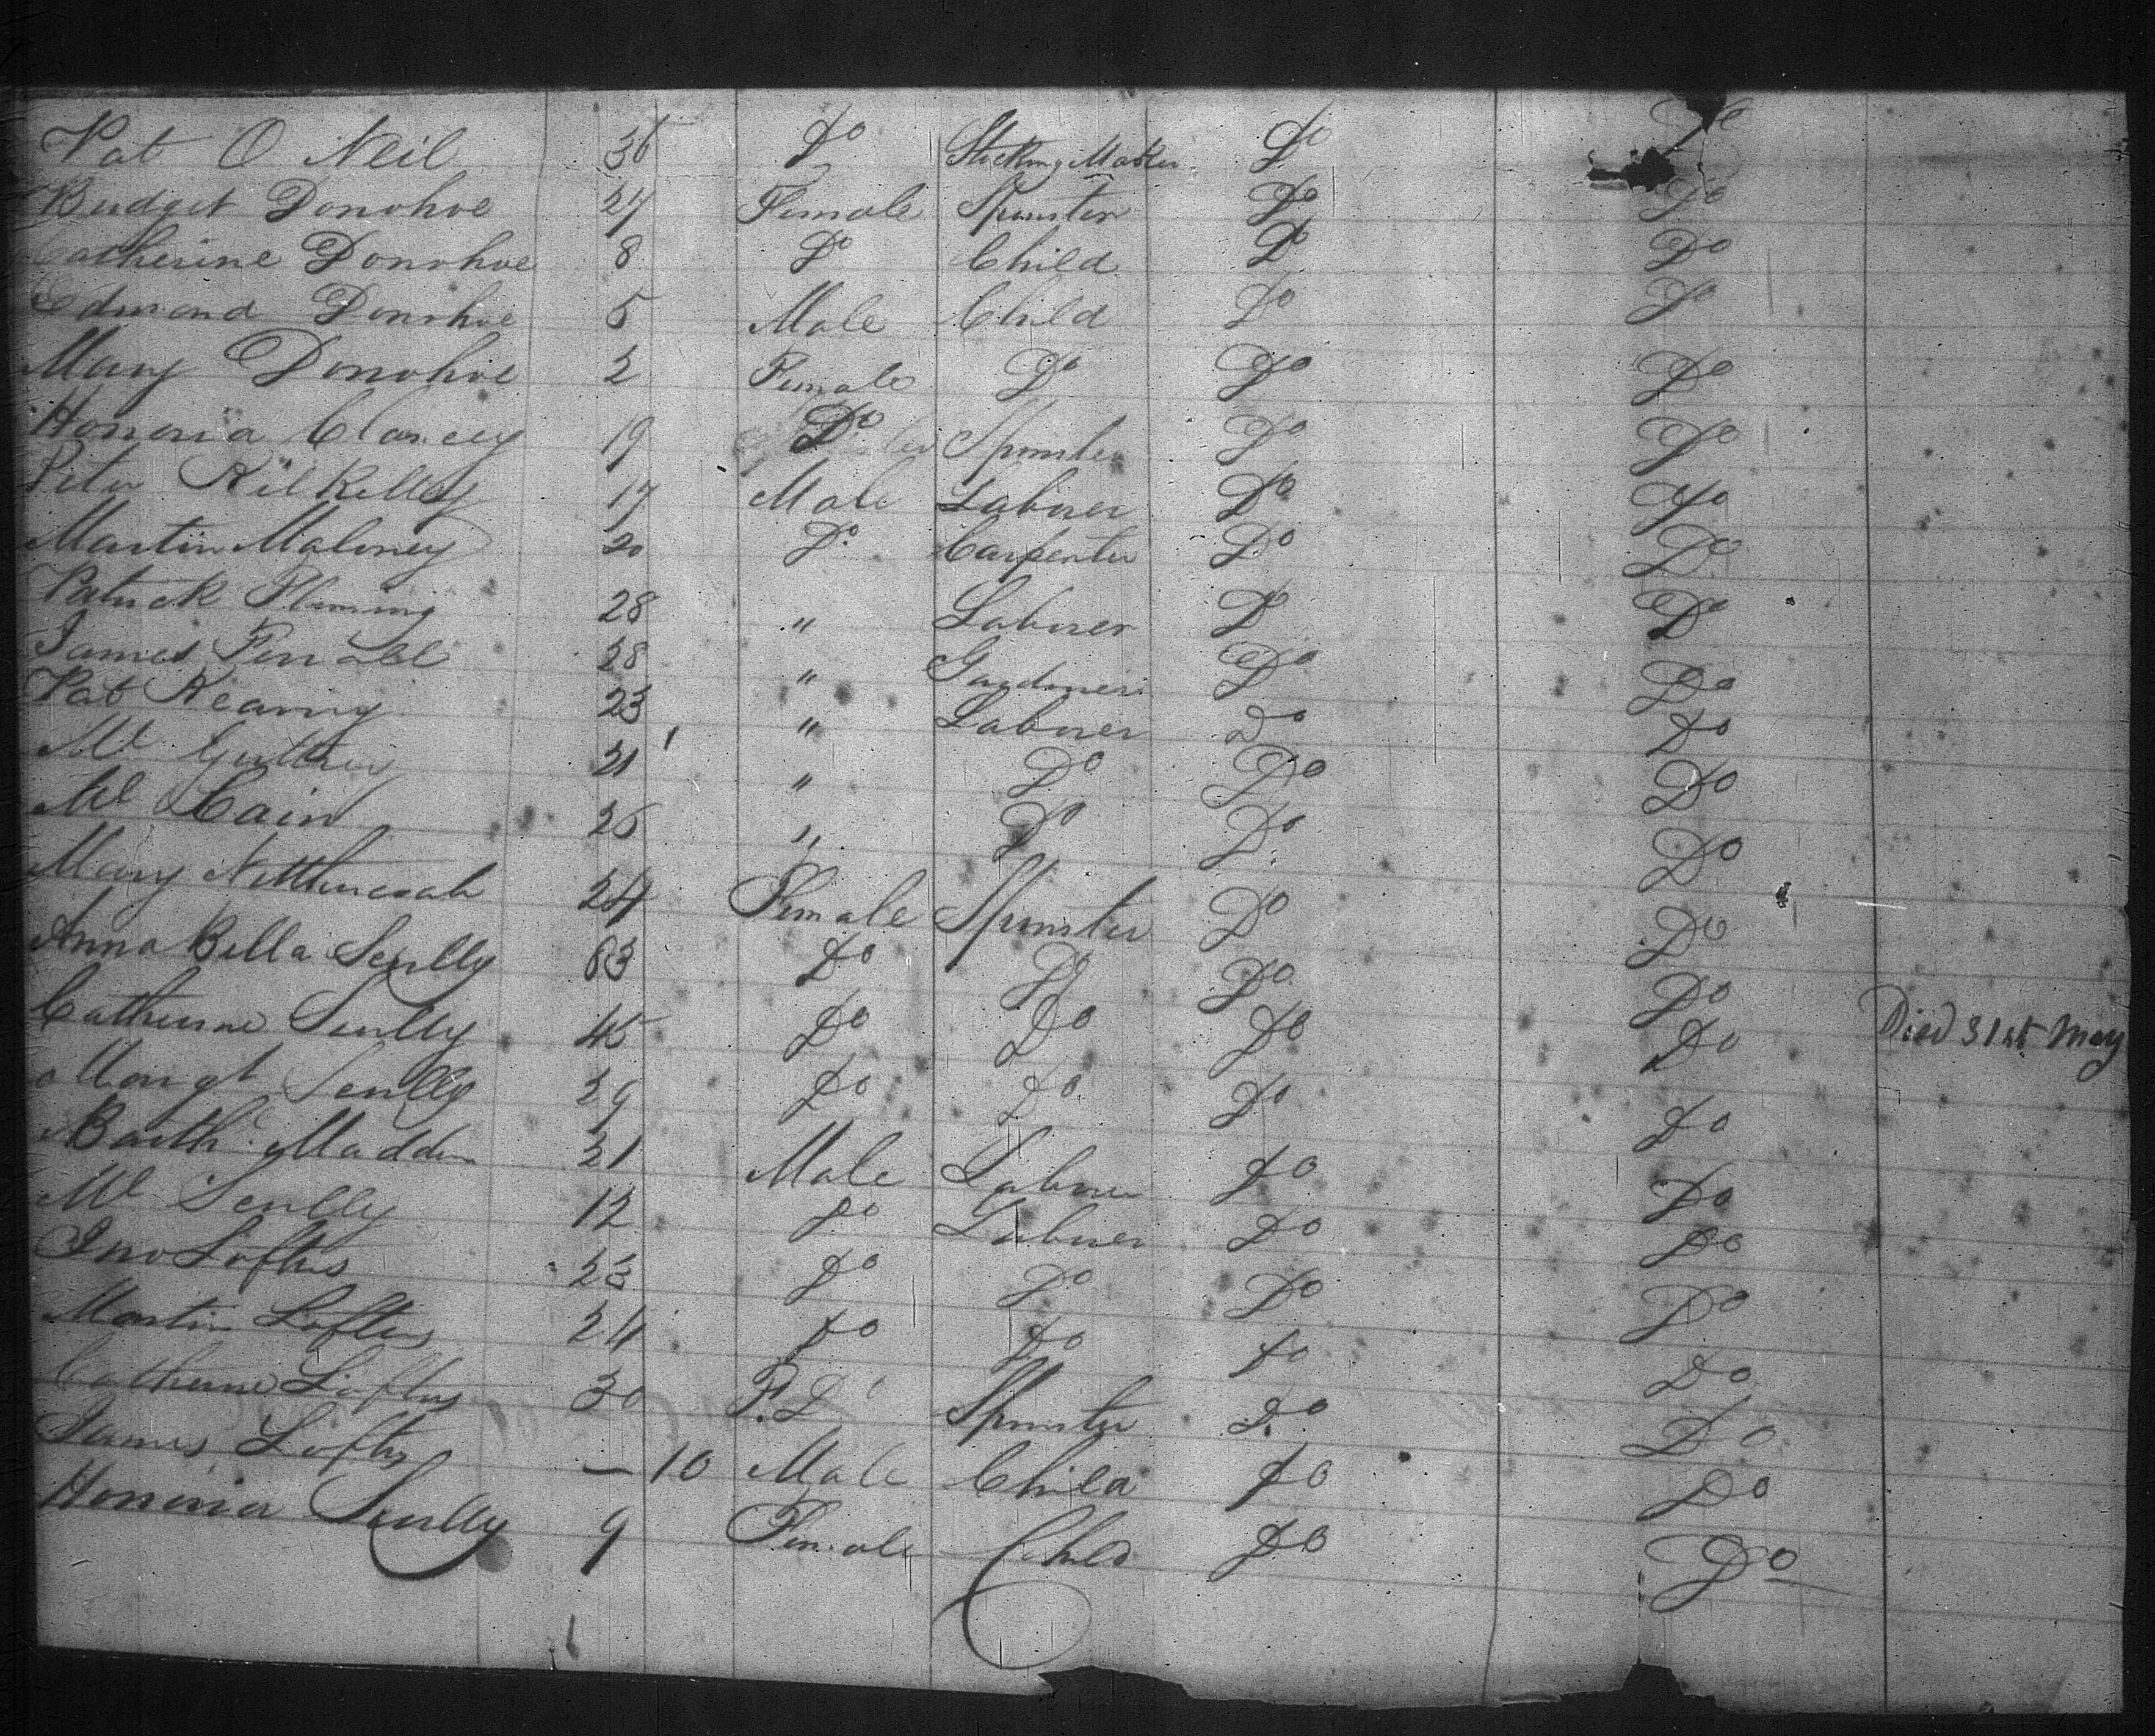 Pat O Neil 36 Do Stocking Maker Do Do
Bridget Donohoe 27 Female Spinster Do Do
Catherine Donohoe 8 Do Child Do Do
Edmond Donohoe 5 Male Child Do Do
Mary Donohoe 2 Female Do Do Do
Honoria Clancey 19 Do Spinster Do Do
Peter Kilkelly 17 Male Laborer Do Do
Martin Maloney 20 Do Carpenter Do Do
Patrick Fleming 28 " Laborer Do Do
James 28 " Gardiner Do Do
Pat Kearny 23 " Laborer Do Do
Ml 21 " Do Do Do
Ml Cain 26 " Do Do Do
Mary 24 Female Spinster Do Do
Anna Bella Scully 63 Do Do Do Do
Catherine Scully 45 Do Do Do Do Died 31st May
Margt Scully 29 Do Do Do Do
Barth Madden 21 Male Laborer Do Do
Ml Scully 12 Do Laborer Do Do
Jno Loftus 23 Do Do Do Do
Martin Loftus 24 Do Do Do Do
Catherine Loftus 30 F. Do Spinster Do Do
James Loftus — 10 Male Child Do Do
Honoria Scully 9 Female Child Do Do